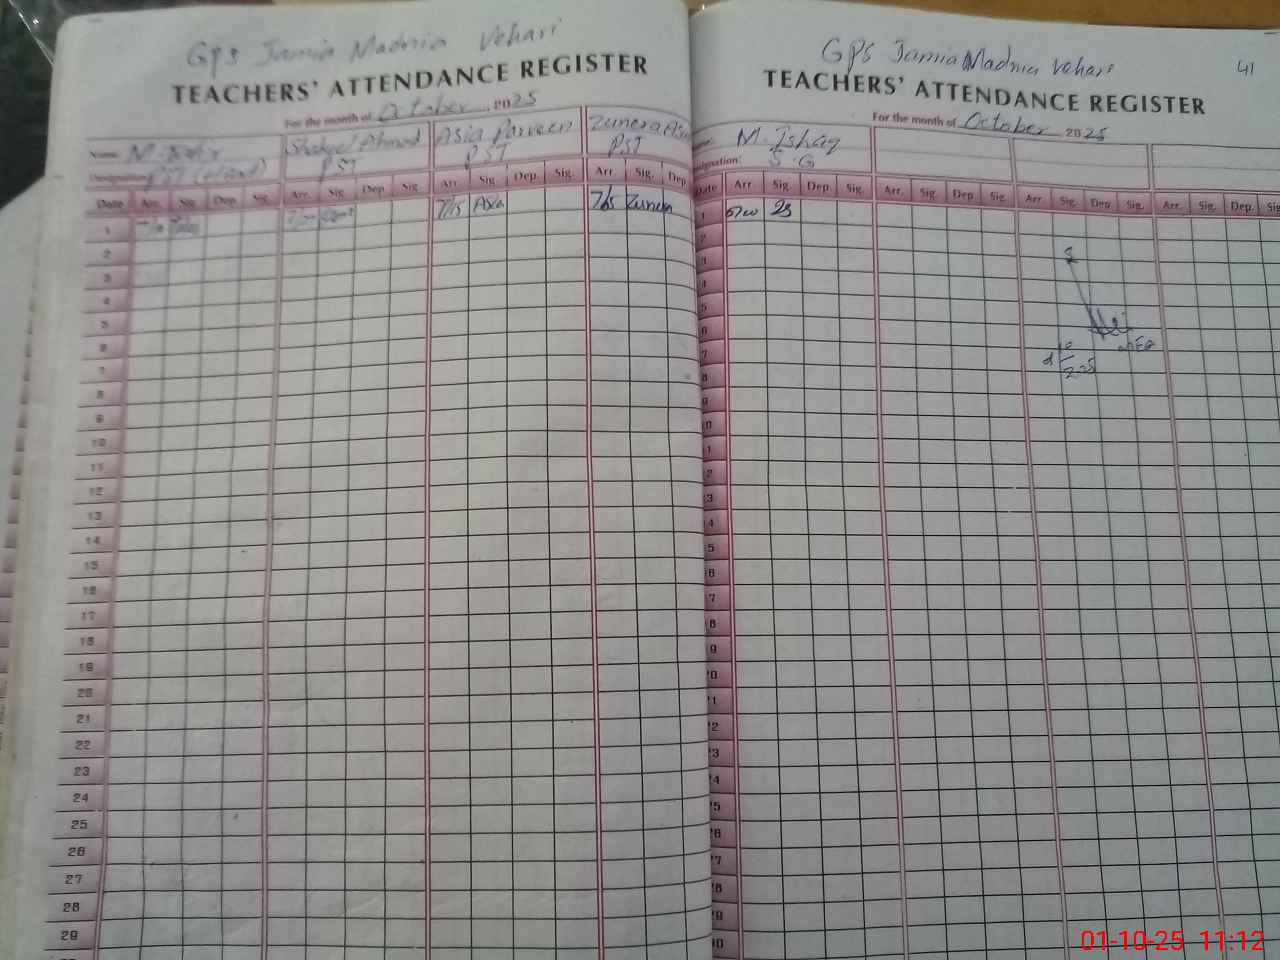 GPS Jamia Madnia Vehari
TEACHERS' ATTENDANCE REGISTER
For the month of October 2025
Name Shakeel Ahmad Asia Parveen Zunera
Designation PST PST PST PST
Date Arr. Sig. Dep. Sig. Arr. Sig. Dep. Sig. Arr. Sig. Dep. Sig. Arr. Sig. Dep.
1 7/15 Asia 7/15 Zunera
2
3
4
5
6
7
8
9
10
11
12
13
14
15
16
17
18
19
20
21
22
23
24
25
26
27
28
29
GPS Jamia Madnia Vehari
41
TEACHERS' ATTENDANCE REGISTER
For the month of October 2025
M. Ishaq
signation: S.G
Date Arr. Sig. Dep. Sig. Arr. Sig. Dep. Sig. Arr. Sig. Dep. Sig. Arr. Sig. Dep. Sig
1
2
3
4
5
6
7
8
9
10
1
2
3
4
5
6
7
8
9
20
1
2
3
4
5
6
7
8
9
30
01-10-25 11:12